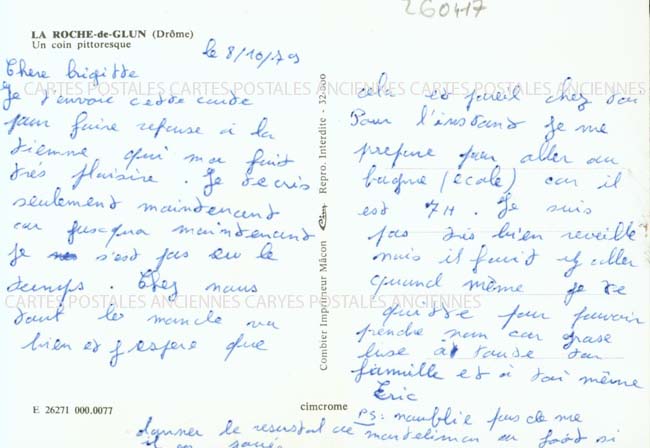 260417
LA ROCHE-de-GLUN (Drôme)
Un coin pittoresque
le 8/10/79
Chere brigitte
Je t'envoie cette carte
pour faire reponse à la
tienne qui ma fait
très plaisire. Je tecris
seulement maintenant
car jusqua maintenant
je s'est pas eu le
temps. Chez nous
tout le monde va
bien et j'espere que
cela est pareil chez toi
Pour l'instant Je me
prepare pour aller au
bagne (école) car il
est 7H. Je suis
pas très bien reveillé
mais il faut y aller
quand même Je te
quitte pour pouvoir
prendre mon car grose
bise à toute ta
famille et à toi même
Eric
PS: noublie pas de me
donner le resultat de montelimar au foot si
CARTES POSTALES ANCIENNES CARTES POSTALES CARTES POSTALES ANCIENNES
CARTES POSTALES ANCIENNES CARYES POSTALES ANCIENNES
Combier Imprimeur Mâcon Cim Repro. Interdite - 32-500
E 26271 000.0077
cimcrome